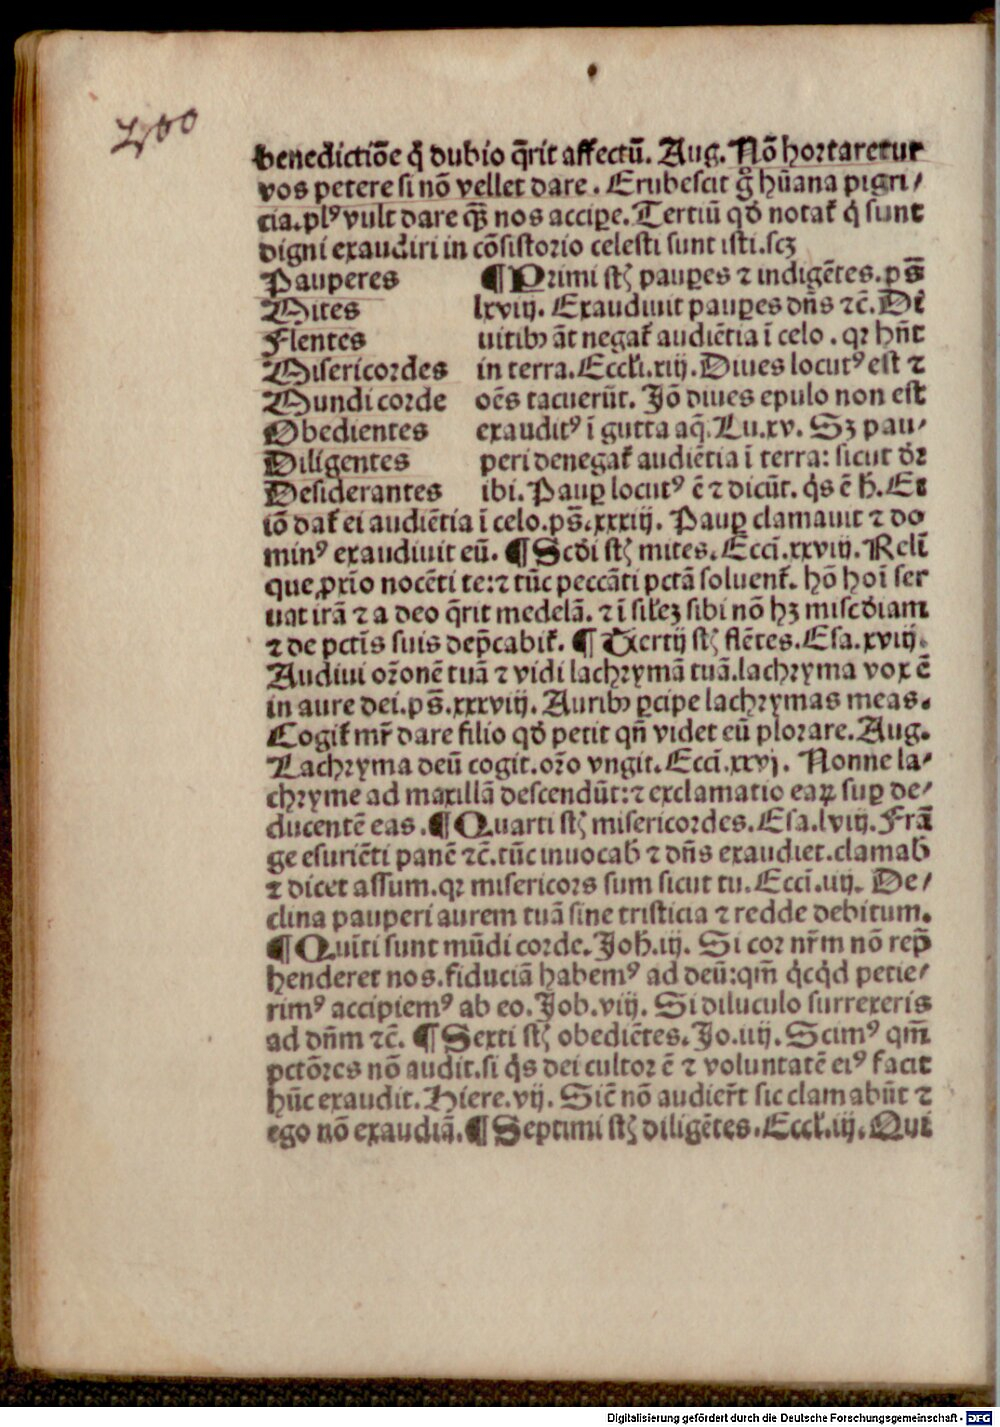 benedictiōe q̄ dubio q̄rit affectū. Aug. Nō hortaretur
vos petere si nō vellet dare. Erubescit g̊ hūana pigri/
tia. plꝰ vult dare qꝫ nos accipe. Tertiū qđ notat̄ q̇ sunt
digni exaudiri in cōsistorio celesti sunt isti. scꝫ
Pauperes
Mites
Flentes
Misericordes
Mundi corde
Obedientes
Diligentes
Desiderantes
¶ Primi st̄ paupes ⁊ indigētes. ps̄
lxviij. Exaudiuit paupes dn̄s ⁊c̄. Di
uitibꝰ āt negat̄ audiētia ī celo. qꝛ hn̄t
in terra. Eccli. xiij. Diues locutꝰ est ⁊
oēs tacuerūt. Jō diues epulo non est
exauditꝰ ī gutta aq̄. Lu. xv. Sꝫ pau/
peri denegat̄ audiētia ī terra: sicut dꝛ
ibi. Paup locutꝰ ē ⁊ dicūt. q̇s ē h̄. Et
iō dat̄ ei audiētia ī celo. ps̄. xxxiij. Paup clamauit ⁊ do
minꝰ exaudiuit eū. ¶ Scđi st̄ mites. Ecci. xxviij. Reli
que ꝓxīo nocēti te: ⁊ tūc peccāti pctā soluent̄. hō hoī ser
uat irā ⁊ a deo q̄rit medelā. ⁊ ī silez sibi nō hꝫ miscđiam
⁊ de pctīs suis dep̄cabit̄. ¶ Tertij st̄ flētes. Esa. xviij.
Audiui or̄onē tuā ⁊ vidi lachrymā tuā. lachryma vox ē
in aure dei. ps̄. xxxviij. Auribꝰ pcipe lachrymas meas.
Cogit̄ mr̄ dare filio qđ petit qn̄ videt eū plorare. Aug.
Lachryma deū cogit. or̄o vngit. Ecci. xxvj. Nonne la/
chryme ad maxillā descendūt: ⁊ exclamatio eaꝝ sup de/
ducentē eas. ¶ Quarti st̄ misericordes. Esa. lviij. Frā
ge esuriēti panē ⁊c̄. tūc inuocab̄ ⁊ dn̄s exaudiet. clamab̄
⁊ dicet assum. qꝛ misericors sum sicut tu. Ecci. iiij. De/
clina pauperi aurem tuā sine tristicia ⁊ redde debitum.
¶ Quīti sunt mūdi corde. Joh̄. iij. Si cor nr̄m nō rep̄
henderet nos. fiduciā habemꝰ ad deū: qm̄ q̇cq̇d petie/
rimꝰ accipiemꝰ ab eo. Job. viij. Si diluculo surrexeris
ad dn̄m ⁊c̄. ¶ Sexti st̄ obediētes. Jo. iiij. Scimꝰ qm̄
pctōres nō audit. si q̇s dei cultor ē ⁊ voluntatē eiꝰ facit
hūc exaudit. Hiere. vij. Sic̄ nō audier̄t sic clamabūt ⁊
ego nō exaudiā. ¶ Septimi st̄ diligētes. Eccl̄. iij. Qui
Digitalisierung gefördert durch die Deutsche Forschungsgemeinschaft - DFG